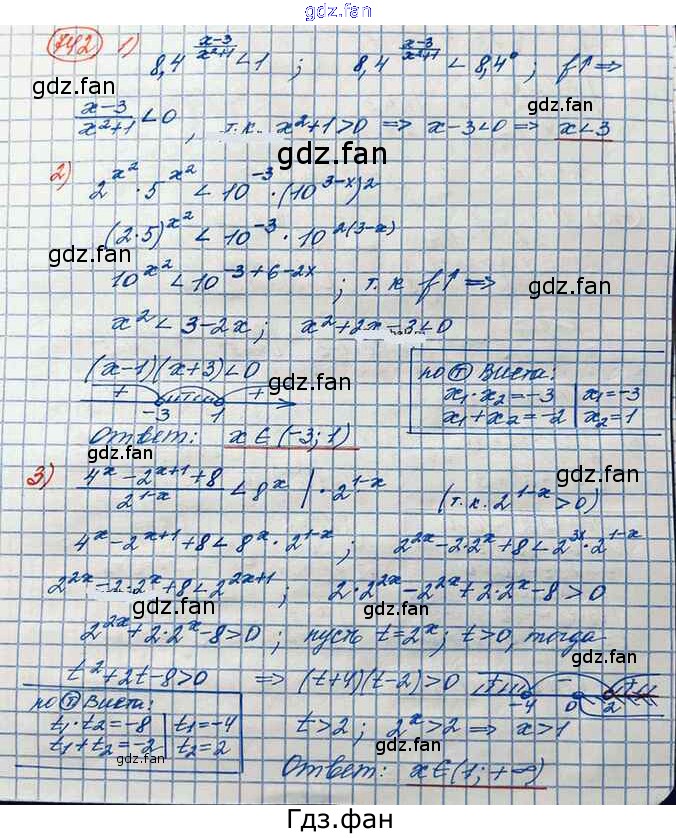 gdz.fan
742 1) 8,4^((x-3)/(x²+1)) < 1 ; 8,4^((x-3)/(x²+1)) < 8,4⁰ ; f↑ ⇒
gdz.fan gdz.fan
(x-3)/(x²+1) < 0 , т.к. x²+1>0 ⇒ x-3<0 ⇒ x<3
gdz.fan
gdz.fan
2) 2^(x²) · 5^(x²) < 10^(-3) · (10^(3-x))²
(2·5)^(x²) < 10^(-3) · 10^(2(3-x))
gdz.fan gdz.fan
10^(x²) < 10^(-3+6-2x) ; т.к f↑ ⇒
gdz.fan gdz.fan
x² < 3-2x ; x²+2x-3<0
(x-1)(x+3)<0
gdz.fan
+ -3 1 +
по Т Виета:
x₁·x₂=-3 x₁=-3
x₁+x₂=-2 x₂=1
gdz.fan
Ответ: x∈(-3;1)
gdz.fan
3) (4^x-2^(x+1)+8)/(2^(1-x)) < 8^x | ·2^(1-x) (т.к. 2^(1-x)>0)
gdz.fan
4^x-2^(x+1)+8<8^x·2^(1-x) ; 2^(2x)-2·2^x+8<2^(3x)·2^(1-x)
gdz.fan
2^(2x)-2·2^x+8<2^(2x+1) ; 2·2^(2x)-2^(2x)+2·2^x-8>0
gdz.fan gdz.fan
2^(2x)+2·2^x-8>0 ; пусть t=2^x ; t>0, тогда
gdz.fan
t²+2t-8>0 ⇒ (t+4)(t-2)>0
+ -4 - 0 2 +
по Т Виета:
t₁·t₂=-8 t₁=-4
t₁+t₂=-2 t₂=2
t>2 ; 2^x>2 ⇒ x>1
gdz.fan
gdz.fan
Ответ: x∈(1;+∞)
gdz.fan
Гдз.фан